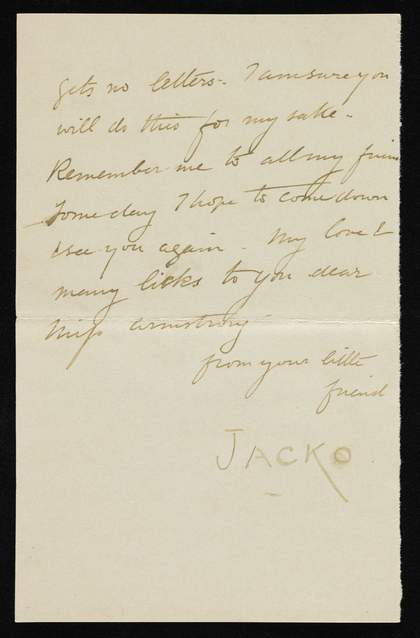 gets no letters - I am sure you
will do this for my sake -
Remember me to all my friends
Some day I hope to come down
& see you again - My love &
many licks to you dear
Miss Armstrong
from your little
friend
JACKO